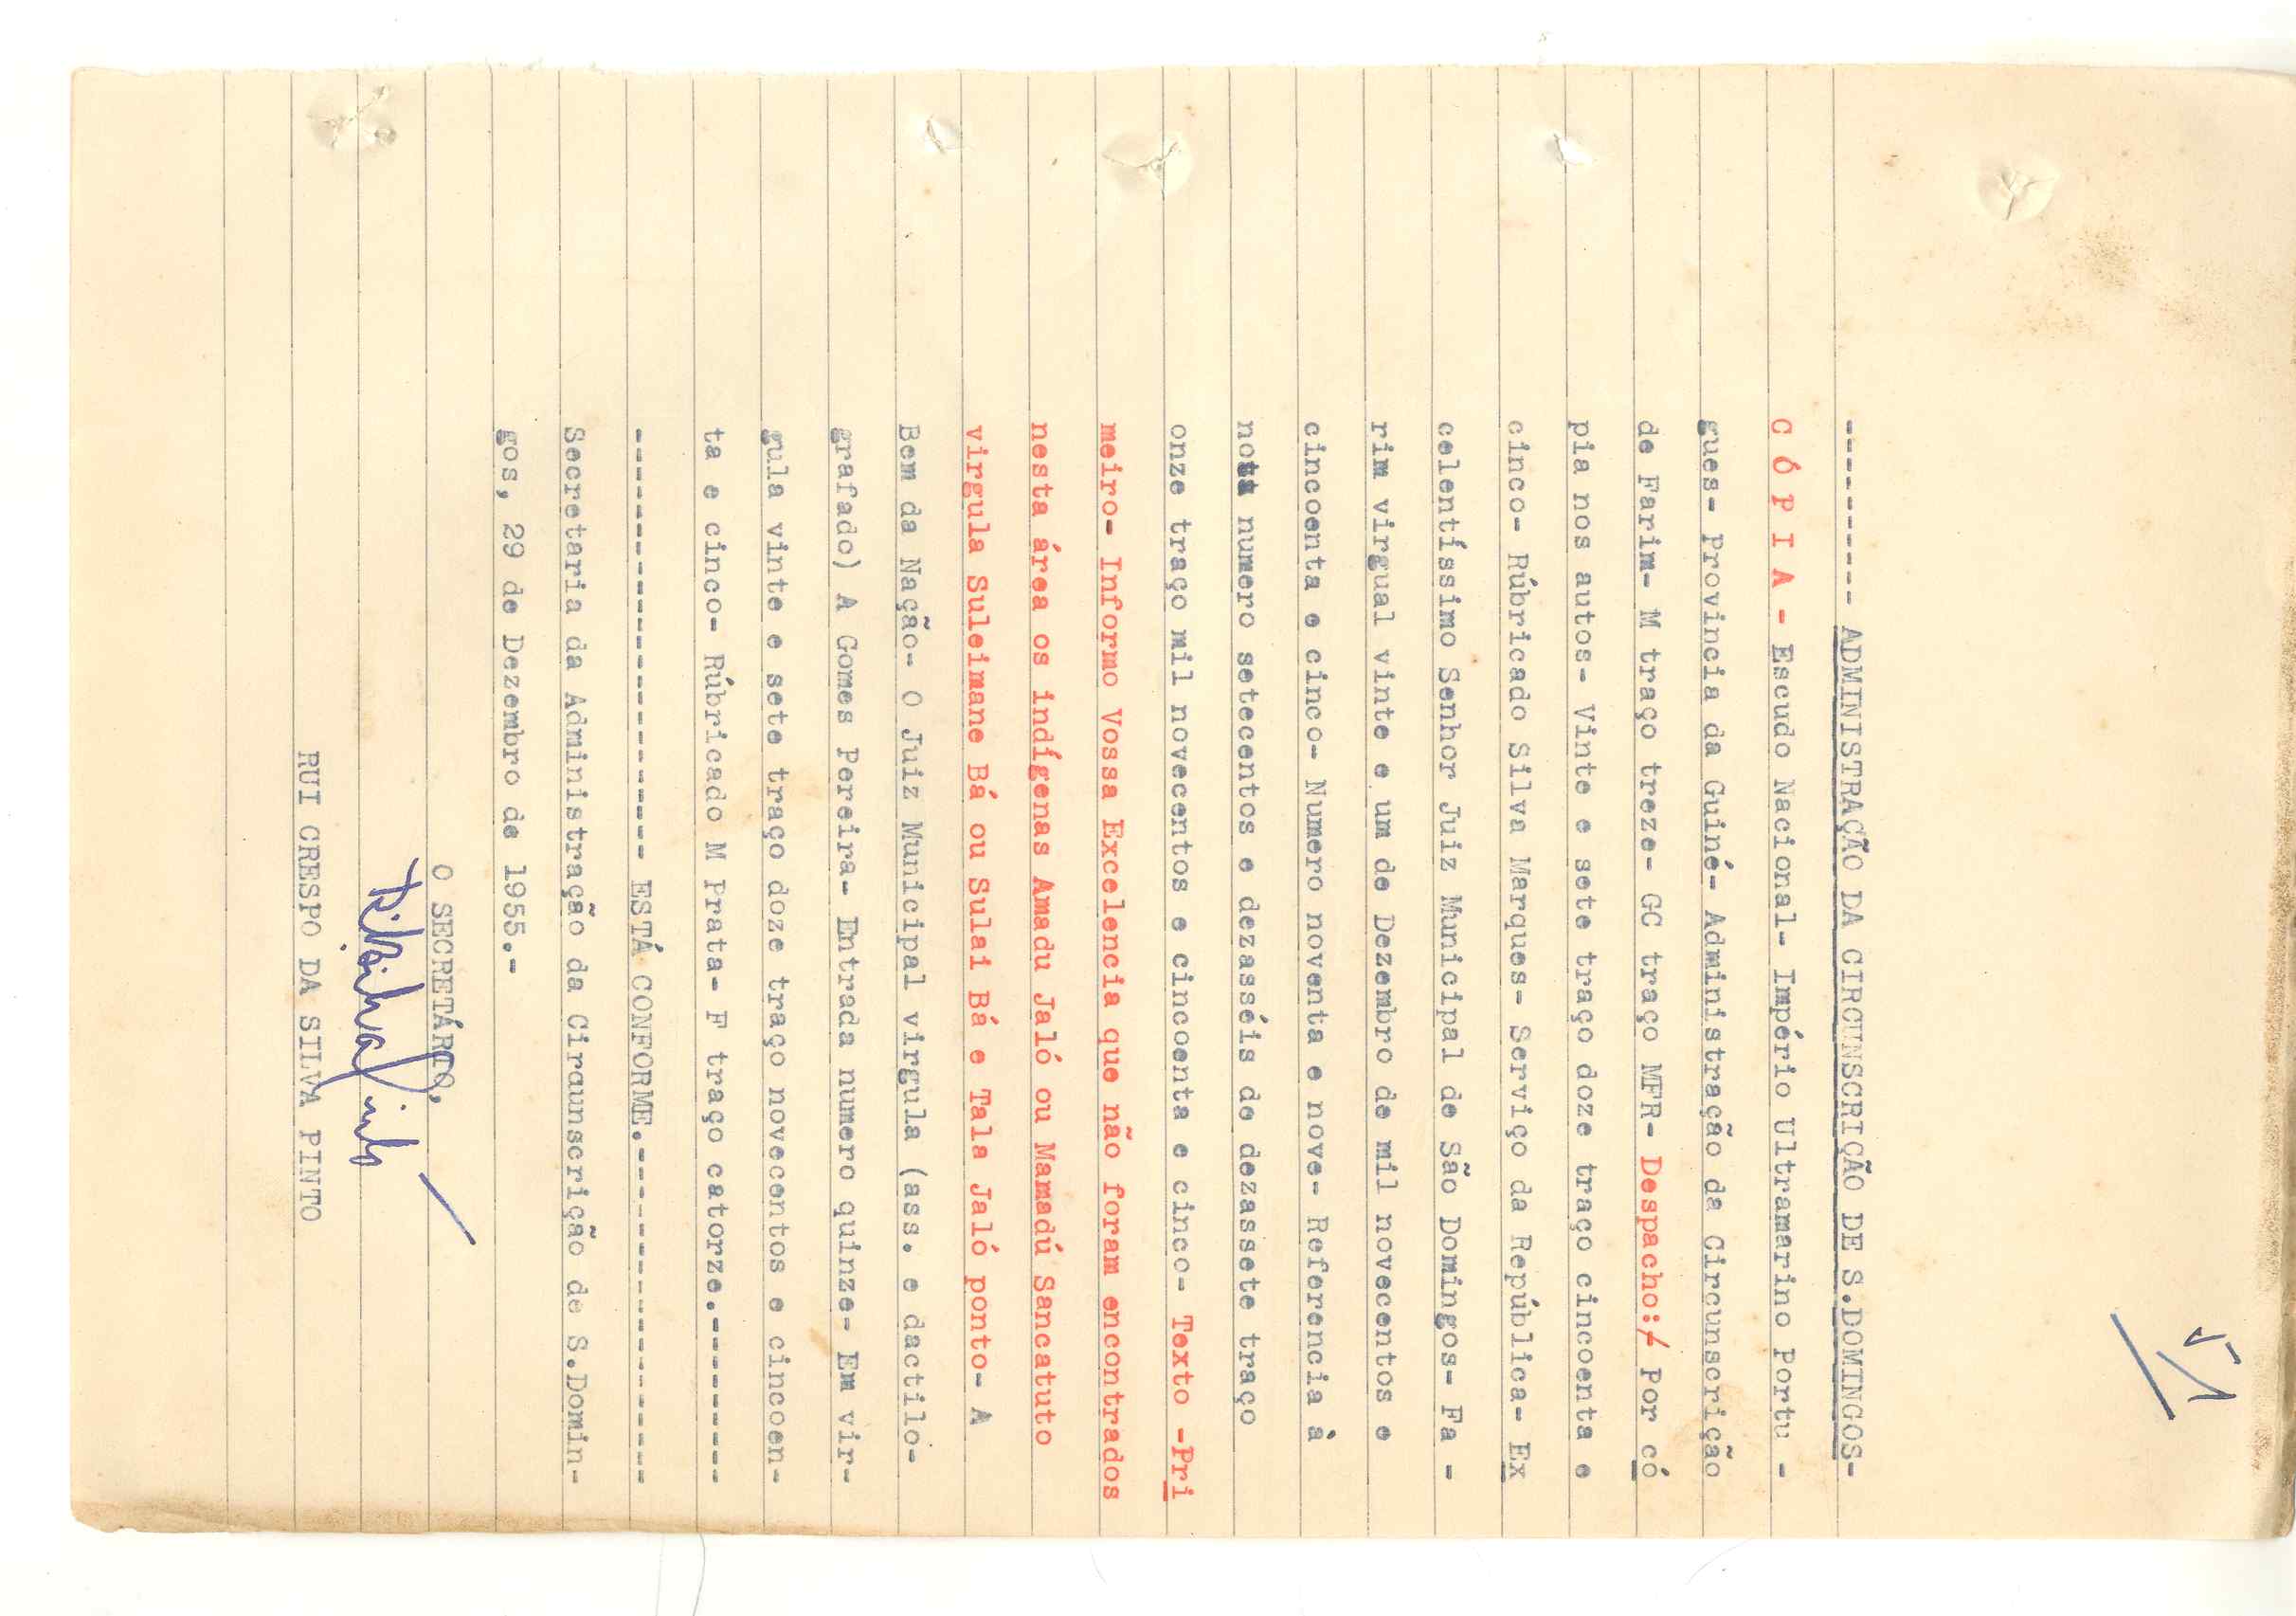 51
---------- ADMINISTRAÇÃO DA CIRCUNSCRIÇÃO DE S.DOMINGOS-
C Ó P I A - Escudo Nacional- Império Ultramarino Portu -
gues- Provincia da Guiné- Administração da Circunscrição
de Farim- M traço treze- GC traço MFR- Despacho:/ Por có
pia nos autos- Vinte e sete traço doze traço cincoenta e
cinco- Rúbricado Silva Marques- Serviço da República- Ex
celentíssimo Senhor Juiz Municipal de São Domingos- Fa -
rim virgual vinte e um de Dezembro de mil novecentos e
cincoenta e cinco- Numero noventa e nove- Referencia à
nota numero setecentos e dezasséis de dezassete traço
onze traço mil novecentos e cincoenta e cinco- Texto -Pri
meiro- Informo Vossa Excelencia que não foram encontrados
nesta área os indígenas Amadu Jaló ou Mamadú Sancatuto
virgula Suleimane Bá ou Sulai Bá e Tala Jaló ponto- A
Bem da Nação- O Juiz Municipal virgula (ass. e dactilo-
grafado) A Gomes Pereira- Entrada numero quinze- Em vir-
gula vinte e sete traço doze traço novecentos e cincoen-
ta e cinco- Rúbricado M Prata- F traço catorze.----------
-------------------------- ESTÁ CONFORME.--------------------
Secretaria da Administração da Ciraunscrição de S.Domin-
gos, 29 de Dezembro de 1955.-
O SECRETÁRIO,
RUI CRESPO DA SILVA PINTO